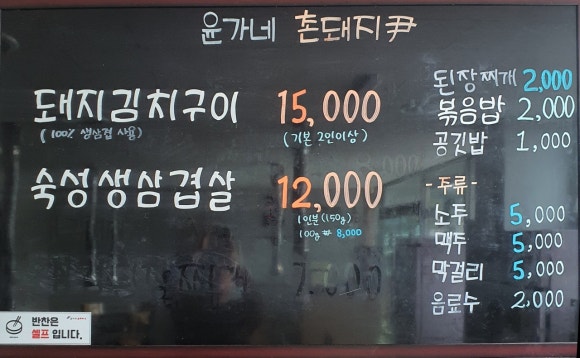 윤가네 촌돼지尹
돼지김치구이 15,000
(100% 생삼겹 사용) (기본 2인이상)
숙성생삼겹살 12,000
1인분(150g)
100g 8,000
된장찌개 2,000
볶음밥 2,000
공깃밥 1,000
-주류-
소주 5,000
맥주 5,000
막걸리 5,000
음료수 2,000
반찬은
셀프입니다.